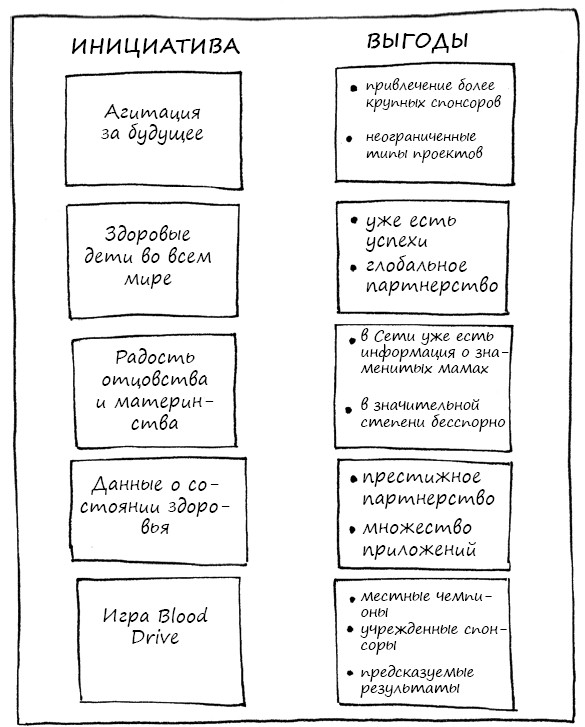 ИНИЦИАТИВА
ВЫГОДЫ
Агитация
за будущее
• привлечение более
крупных спонсоров
• неограниченные
типы проектов
Здоровые
дети во всем
мире
• уже есть
успехи
• глобальное
партнерство
Радость
отцовства
и материн-
ства
• в Сети уже есть
информация о зна-
менитых мамах
• в значительной
степени бесспорно
Данные о со-
стоянии здоро-
вья
• престижное
партнерство
• множество
приложений
Игра Blood
Drive
• местные чемпи-
оны
• учрежденные спон-
соры
• предсказуемые
результаты